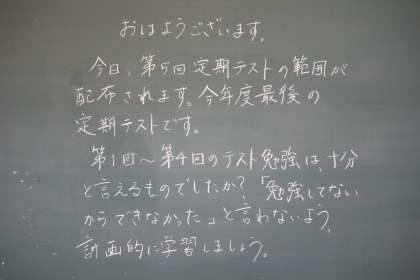 おはようございます。
今日、第5回定期テストの範囲が
配布されます。今年度最後の
定期テストです。
第1回～第4回のテスト勉強は、十分
と言えるものでしたか?「勉強してない
からできなかった」と言わないよう、
計画的に学習しましょう。